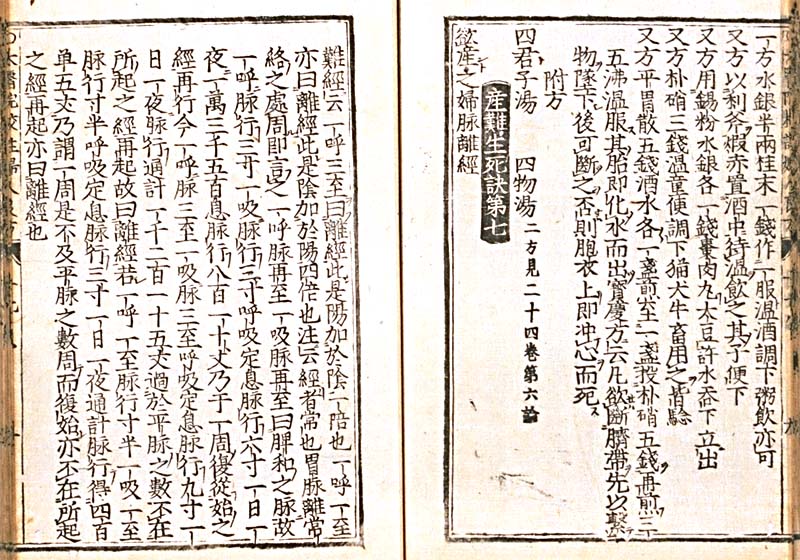 一方水銀半兩桂末一錢作一服溫酒調下粥飲亦可
又方以利斧煆赤置酒中待溫飲之其子便下
又方用錫粉水銀各一錢棗肉丸大豆許水吞下立出
又方朴硝三錢溫童便調下猫犬牛畜用之皆驗
又方平胃散五錢酒水各一盞煎至一盞投朴硝五錢再煎三
五沸溫服其胎即化水而出寶慶方云凡欲斷臍帶先以繫
物墜下後可斷之否則胞衣上即冲心而死
附方
四君子湯　四物湯　二方見二十四卷第六論
産難生死訣第七
欲産之婦脉離經
難經云一呼三至曰離經此是陽加於陰二陪也一呼一至
亦曰離經此是陰加於陽四倍也注云經者常也胃脉離常
絡之處周即言之一呼脉再至一吸脉再至曰脾和之脉故
一呼脉行三寸一吸脉行三寸呼吸定息脉行六寸一日一
夜一萬三千五百息脉行八百一十丈乃于一周復從始之
經再行今一呼脉三至一吸脉三至呼吸定息脉行九寸一
日一夜脉行通計一千二百一十五丈過於平脉之數不在
所起之經再起故曰離經若一呼一至脉行寸半一吸一至
脉行寸半呼吸定息脉行三寸一日一夜通計脉行得四百
单五丈乃謂一周是不及平脉之數周而復始亦不在所起
之經再起亦曰離經也